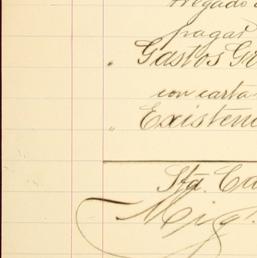 pagar
Gastos Gr
con carta
Existen
Sta. Ca
Mig.